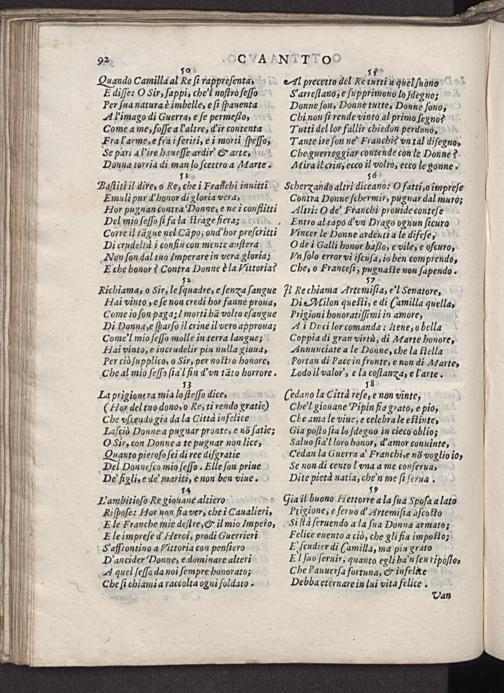 92 CANTO
50
Quando Camilla al Re si rappresenta,
E disse: O Sir, sappi, che'l nostro sesso
Per sua natura è imbelle, e si spauenta
A l'imago di Guerra, e se permesso,
Come a me, fosse a l'altre, d'ir contenta
Fra l'arme, e fra i feriti, e i morti spesso,
Se pari a l'ire hauesse ardir' & arte,
Donna torria di man lo scettro a Marte.
51
Bastiti il dire, o Re, che i Franchi inuitti
Emuli pur d'honor di gloria vera,
Hor pugnan contra Donne, e ne i conflitti
Del mio sesso si fa la strage fiera;
Corre il sāgue nel Cāpo, ond'hor prescritti
Di crudeltà i confin con mente austera
Non son dal tuo Imperare in vera gloria;
E che honor? Contra Donne è la Vittoria?
52
Richiama, o Sir, le squadre, e senza sangue
Hai vinto, e se non credi hor fanne proua,
Come io son paga; I morti hā volto esangue
Di Donna, e sparso il crine il vero approua;
Come'l mio sesso molle in terra langue;
Hai vinto, e incrudelir piu nulla gioua,
Per ciò supplico, o Sir, per nostro honore,
Che al mio sesso sia'l fin d'vn tāto horrore.
53
La prigionera mia lo stesso dice,
(Hor del tuo dono, o Re, ti rendo gratie)
Che vscendo gia da la Città infelice
Lasciò Donne a pugnar pronte, e nō satie;
O Sir, con Donne a te pugnar non lice,
Quanto pietoso sei di ree disgratie
Del Donnesco mio sesso. Elle son priue
De' figli, e de' mariti, e non ben viue.
54
L'ambitioso Re giouane altiero
Rispose: Hor non fia ver, che i Caualieri,
E le Franche mie destre, & il mio Impero,
E le imprese d'Heroi, prodi Guerrieri
S'affrontino a Vittoria con pensiero
D'ancider Donne, e dominare alteri
A quel sesso da noi sempre honorato;
Che si chiami a raccolta ogni soldato.
55
Al precetto del Re tutti a quel suono
S'arrestano, e supprimono lo sdegno;
Donne son, Donne tutte, Donne sono,
Chi non si rende vinto al primo segno?
Tutti del lor fallir chiedon perdono,
Tante ire son ne' Franchi? vn tal disegno,
Che guerreggiar contende con le Donne?
Mira il crin, ecco il volto, ecco le gonne.
56
Scherzando altri diceano: O fatti, o imprese
Contra Donne schermir, pugnar dal muro;
Altri: O de' Franchi prouide contese
Entro al capo d'vn Drago ognun sicuro
Vincer le Donne ardenti a le difese,
O de i Galli honor basso, e vile, e oscuro,
Vn solo error vi iscusa, io ben comprendo,
Che, o Francesi, pugnaste non sapendo.
57
Il Re chiama Artemisia, e'l Senatore,
Di Milon questi, e di Camilla quella,
Prigioni honoratissimi in amore,
A i Duci lor comanda: Itene, o bella
Coppia di gran virtù, di Marte honore,
Annunciate a le Donne, che la stella
Portan di Pace in fronte, e non di Marte,
Lodo il valor', e la costanza, e l'arte.
58
Cedano la Città rese, e non vinte,
Che'l giouane Pipin fia grato, e pio,
Che ama le viue, e celebra le estinte,
Gia posto sia lo sdegno in cieco oblio;
Saluo sia'l loro honor, d'amor conuinte,
Cedan la Guerra a' Franchi, e nō voglio io,
Se non di cento l'vna a me conserua,
Dite pietà natia, che'n me si serua.
59
Gia il buono Hettorre a la sua Sposa a lato
Prigione, e seruo d'Artemisia ascosto
Si stà seruendo a la sua Donna armato;
Felice euento a ciò, che gli fia imposto;
E scudier di Camilla, ma piu grato
E'l suo seruir, quanto egli ha'n sen riposto,
Che l'auuersa fortuna, & infelice
Debba eternare in lui vita felice.
Van